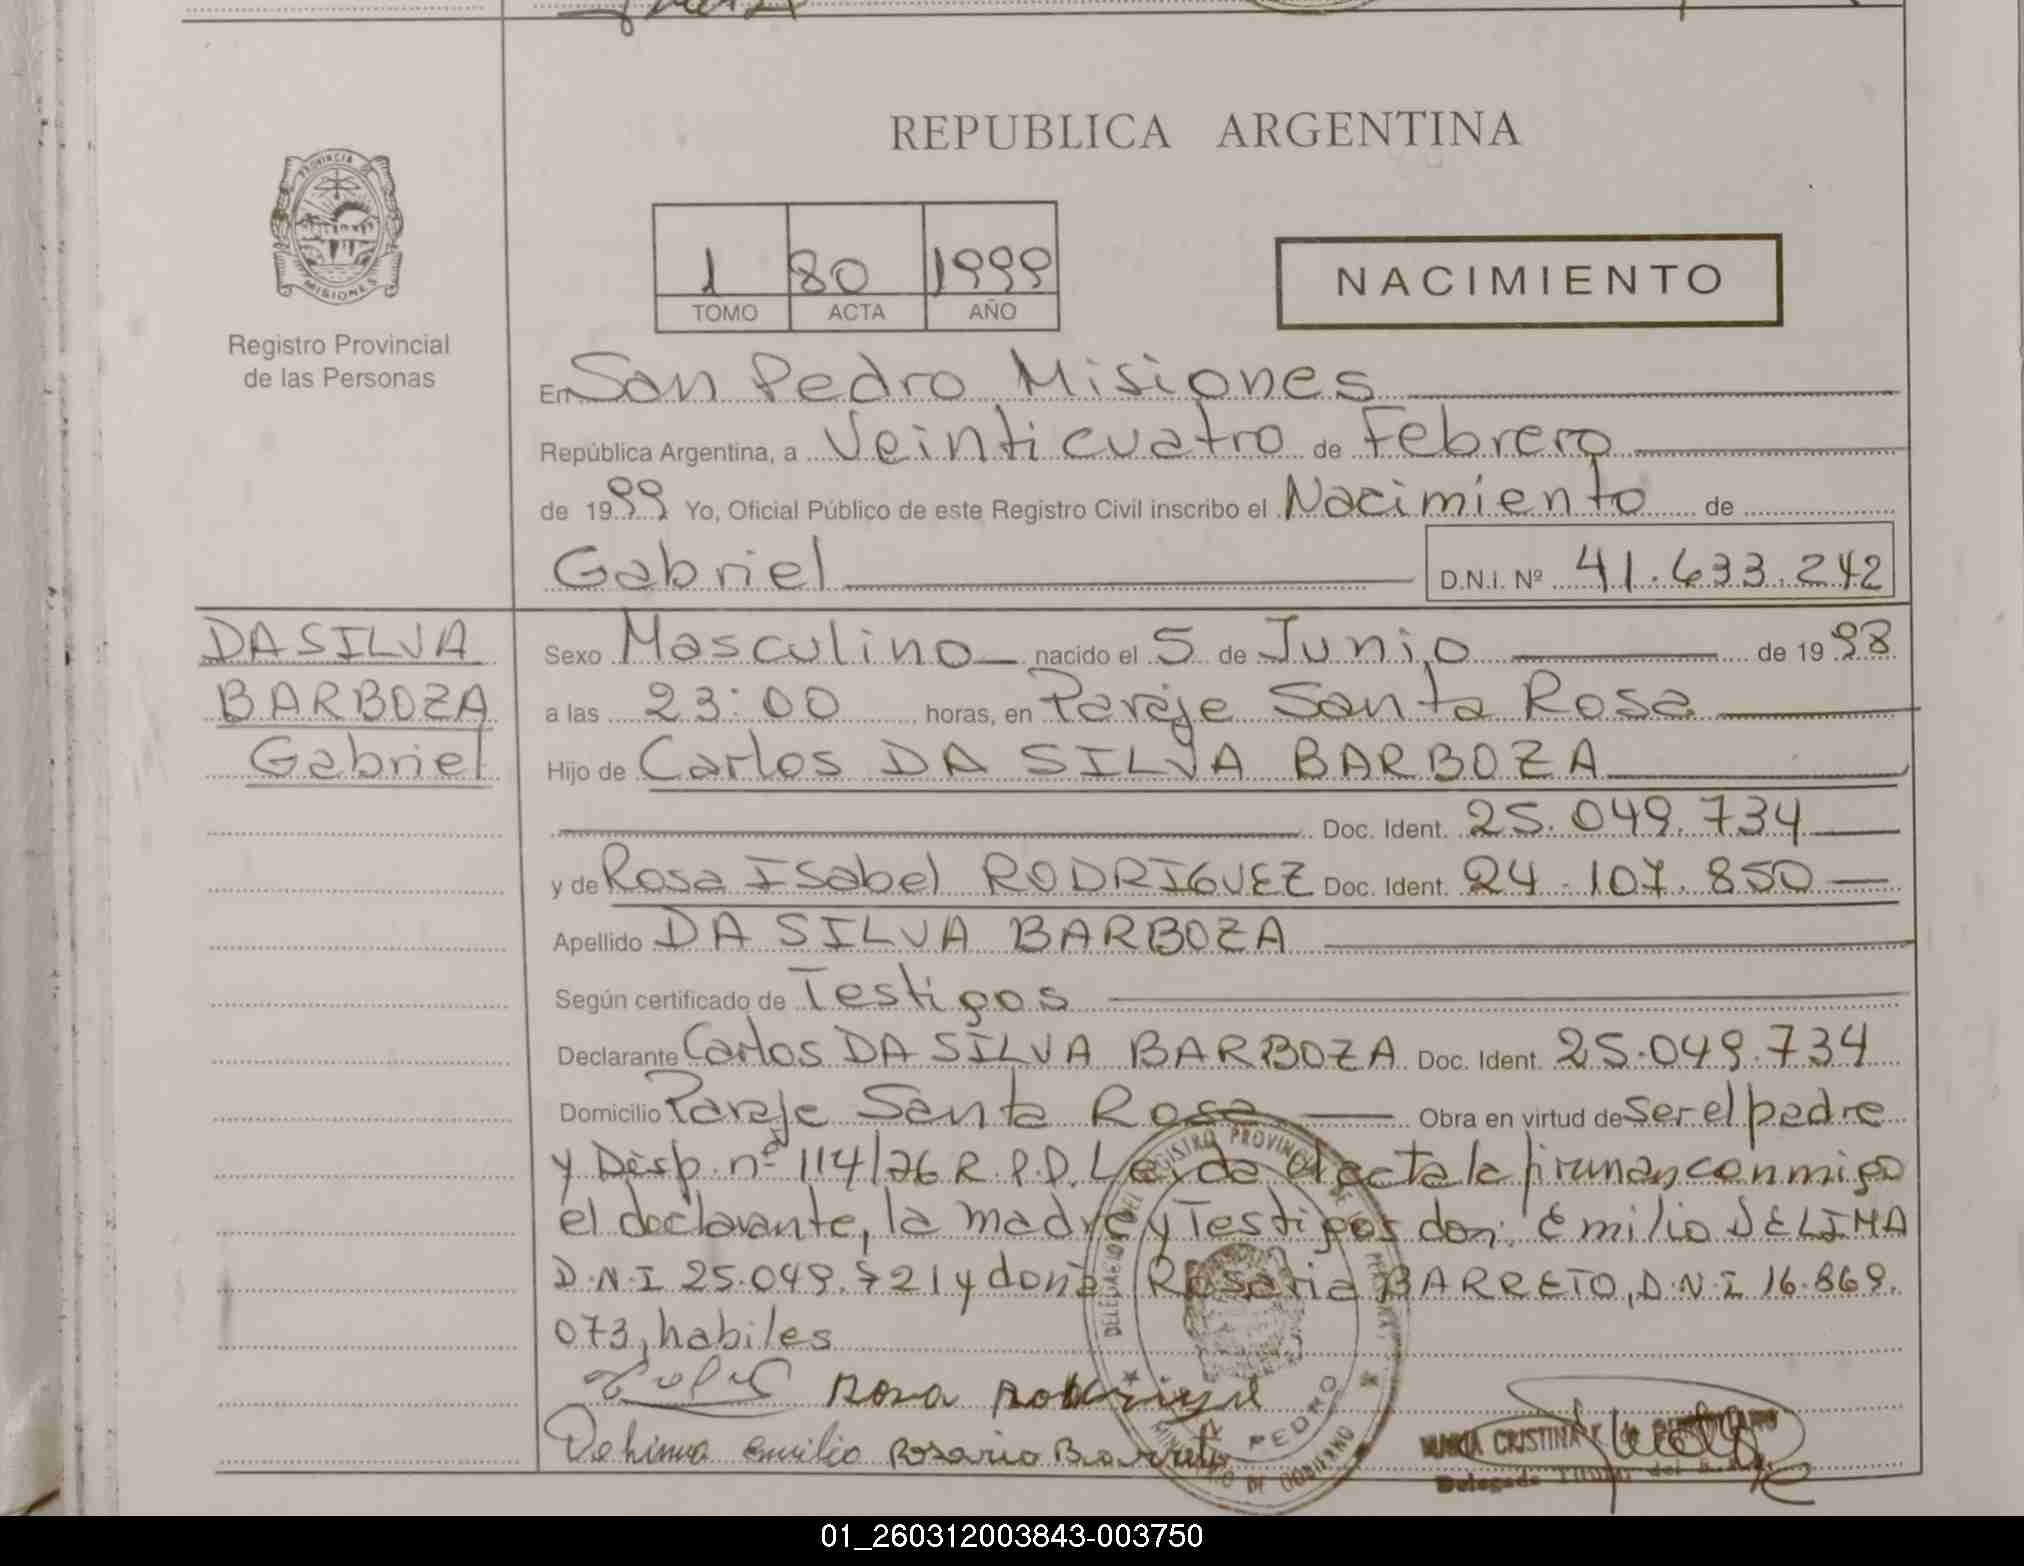 REPUBLICA ARGENTINA
PROVINCIA DE
MISIONES
Registro Provincial
de las Personas
1 80 1999
TOMO ACTA AÑO
NACIMIENTO
En San Pedro Misiones
República Argentina, a Veinticuatro de Febrero
de 1999 Yo, Oficial Público de este Registro Civil inscribo el Nacimiento de
Gabriel D.N.I. Nº 41.633.242
DA SILVA
BARBOZA
Gabriel
Sexo Masculino nacido el 5 de Junio de 1998
a las 23:00 horas, en Paraje Santa Rosa
Hijo de Carlos DA SILVA BARBOZA
Doc. Ident. 25.049.734
y de Rosa Isabel RODRIGUEZ Doc. Ident. 24.107.850
Apellido DA SILVA BARBOZA
Según certificado de Testigos
Declarante Carlos DA SILVA BARBOZA Doc. Ident. 25.049.734
Domicilio Paraje Santa Rosa Obra en virtud de ser el padre
y Disp. nº 114/76 R.P.P. Leida el acta la firman conmigo
el declarante, la madre y Testigos don: Emilio DELIMA
D.N.I 25.049.721 y doña Rosaria BARRETO, D.N.I 16.869.
073, habiles
Rosa Rodriguez
Dehima Emilio Rosario Barreto
REGISTRO PROVINCIAL DE LAS PERSONAS
PEDRO
MINISTERIO DE GOBIERNO
MARIA CRISTINA
Delegada Titular del
01_260312003843-003750